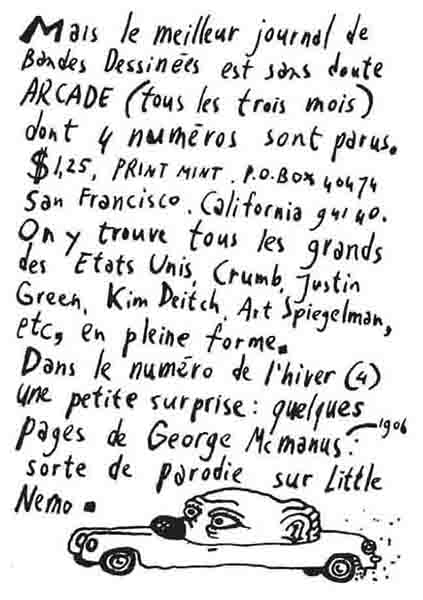 Mais le meilleur journal de
Bandes Dessinées est sans doute
ARCADE (tous les trois mois)
dont 4 numéros sont parus.
$1,25, PRINT MINT. P.O.BOX 40474
San Francisco. California 94140.
On y trouve tous les grands
des Etats Unis, Crumb, Justin
Green, Kim Deitch, Art Spiegelman,
etc, en pleine forme.
Dans le numéro de l'hiver (4)
une petite surprise: quelques
pages de George Mcmanus: 1906
sorte de parodie sur Little
Nemo.